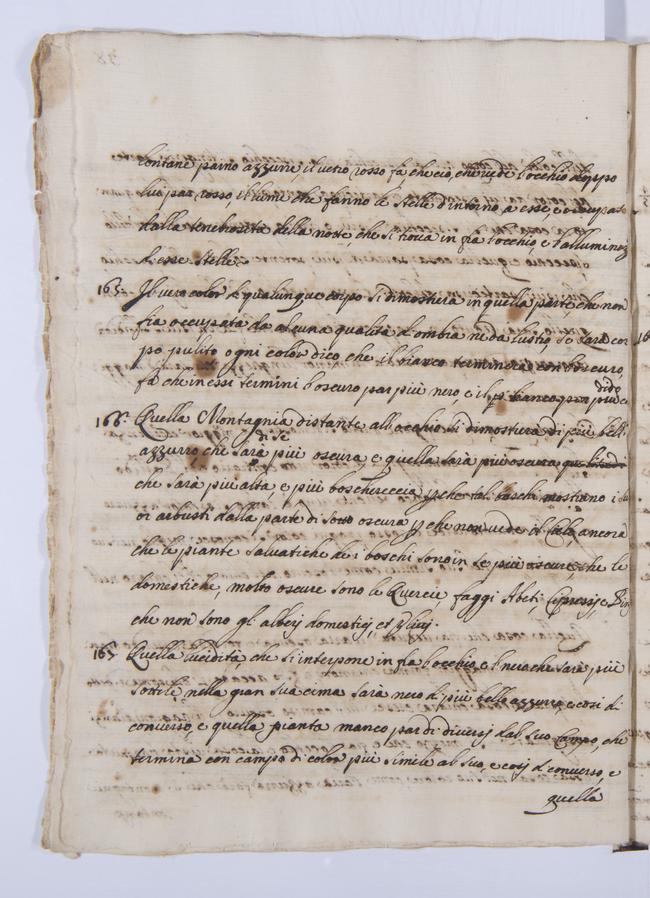 lontane paino azzurre, il uetro rosso fa che ciò, che uede l'occhio doppo
lui par rosso, il lume che fanno le stelle d'intorno a esse, è occupato
dalla tenebrosità della notte, che si troua in fra l'occhio, e l'alluminaz
d'esse stelle.
165. Il uero color di qualunque corpo si dimostrera in quella parte, che non
fia occupata da alcuna qualità d'ombra ne da lustro, se sarà cor
po pulito ogni color dico che il bianco termina con l'oscuro,
fa che in essi termini l'oscuro par più nero, e il bianco par più ca
dido
166. Quella Montagnia distante all'occhio si dimostrera di più bell'
azzurro che sarà di se più oscura, e quella sarà più oscura
che sarà più alta, e più boschereccia p che tal boschi mostrano i su
oi arbusti dalla parte di sotto oscura p che non uede il Cielo, ancora
che le piante saluatiche de i boschi sono in se più oscure, che le
domestiche, molto oscure sono le Quercie, faggi Abeti, Cipressi, e Pin
che non sono gl' alberi domestici, et uliui.
167. Quella lucidità che s'interpone in fra l'occhio, e l nero che sarà più
sottile, nella gran sua cima farà nero di più bello azzurro, e cosi di
conuerso, e quella pianta manco par di diuersi dal suo Campo, che
termina con campo di color più simile al suo, e cosi d conuerso, e
quella